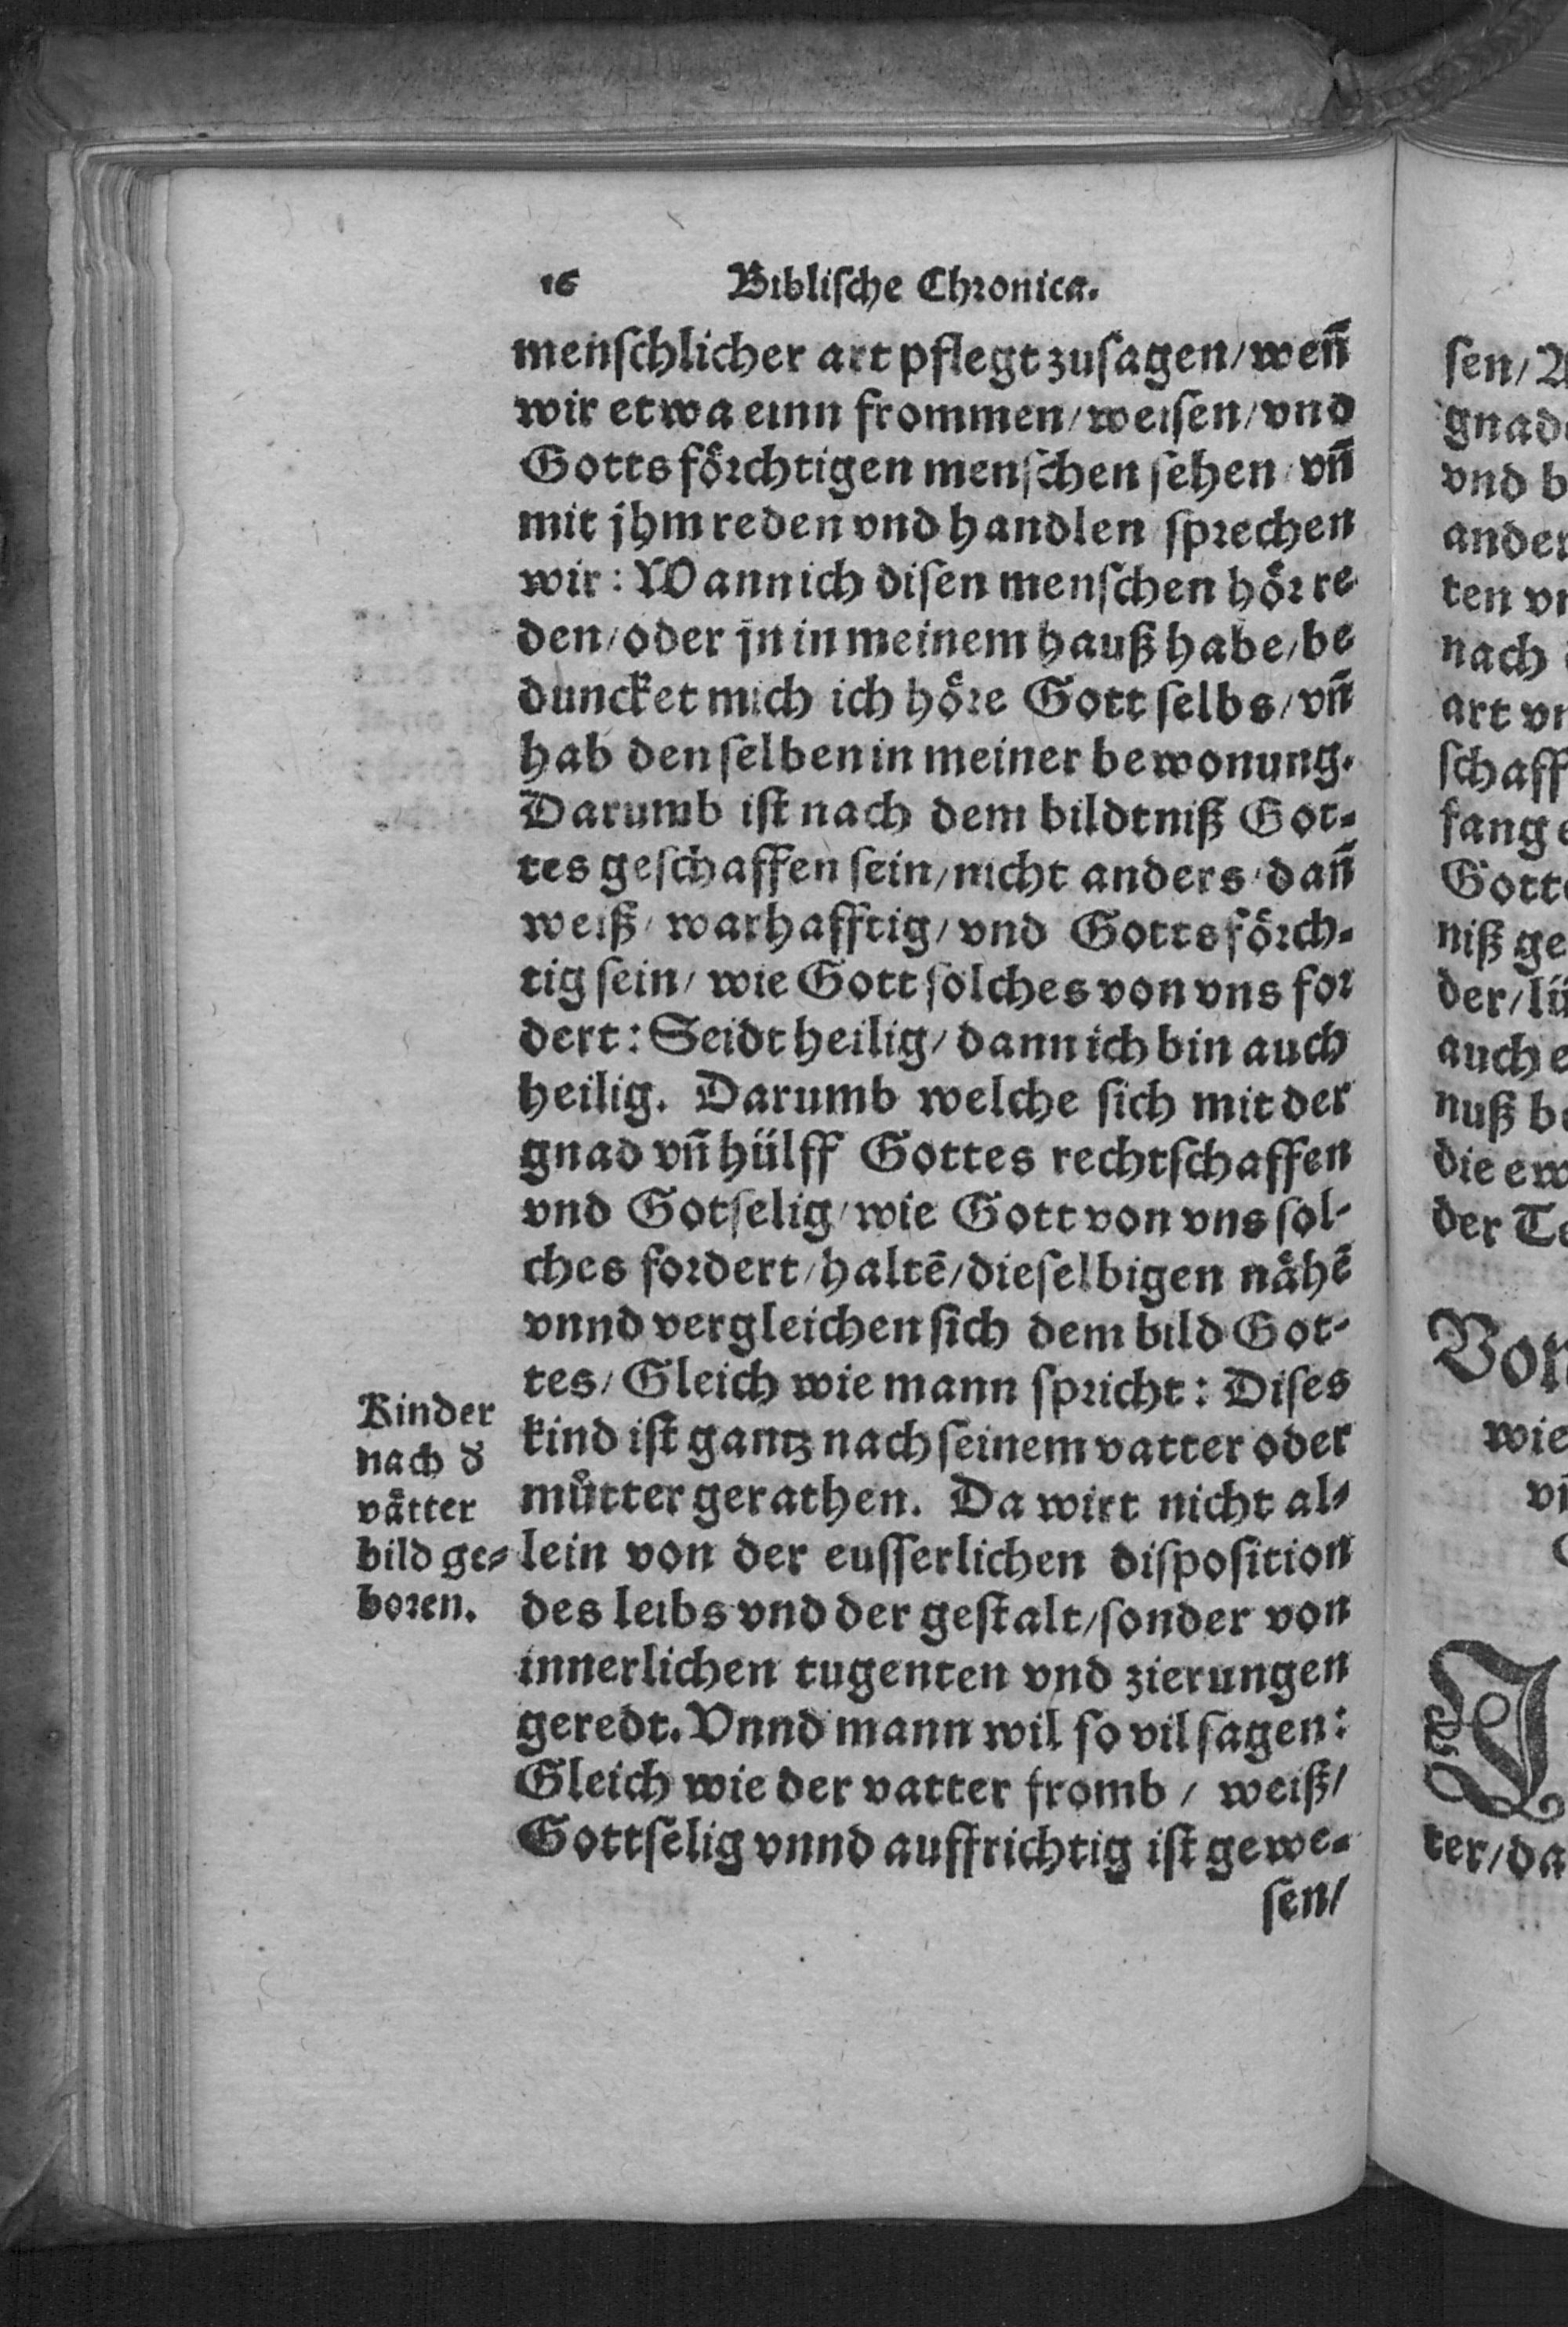 16 Biblische Chronica.
menschlicher art pflegt zusagen/ wen̄
wir etwa einn frommen/ weisen/ vnd
Gottsförchtigen menschen sehen/ vn̄
mit jhm reden vnd handlen sprechen
wir: Wann ich disen menschen hör re
den/ oder jn in meinem hauß habe/ be
duncket mich ich höre Gott selbs/ vn̄
hab den selben in meiner bewonung.
Darumb ist nach dem bildtniß Got⸗
tes geschaffen sein/ nicht anders/ dan̄
weiß/ warhafftig/ vnd Gottsförch⸗
tig sein/ wie Gott solches von vns for
dert: Seidt heilig/ dann ich bin auch
heilig. Darumb welche sich mit der
gnad vn̄ hülff Gottes rechtschaffen
vnd Gotselig/ wie Gott von vns sol⸗
ches fordert/ haltē/ dieselbigen nåhē
vnnd vergleichen sich dem bild Got⸗
tes/ Gleich wie mann spricht: Dises
kind ist gantz nach seinem vatter oder
můtter gerathen. Da wirt nicht al⸗
lein von der eusserlichen disposition
des leibs vnd der gestalt/ sonder von
innerlichen tugenten vnd zierungen
geredt. Vnnd mann wil so vil sagen:
Gleich wie der vatter fromb / weiß/
Gottselig vnnd auffrichtig ist gewe⸗
sen/
Kinder
nach d̄
våtter
bild ge⸗
boren.
sen/
gnad
vnd b
ander
ten
nach
art
schaff
fang
Gott
niß ge
der/ lü
auch e
nuß b
die ew
der T
Von
wie
ter/ da